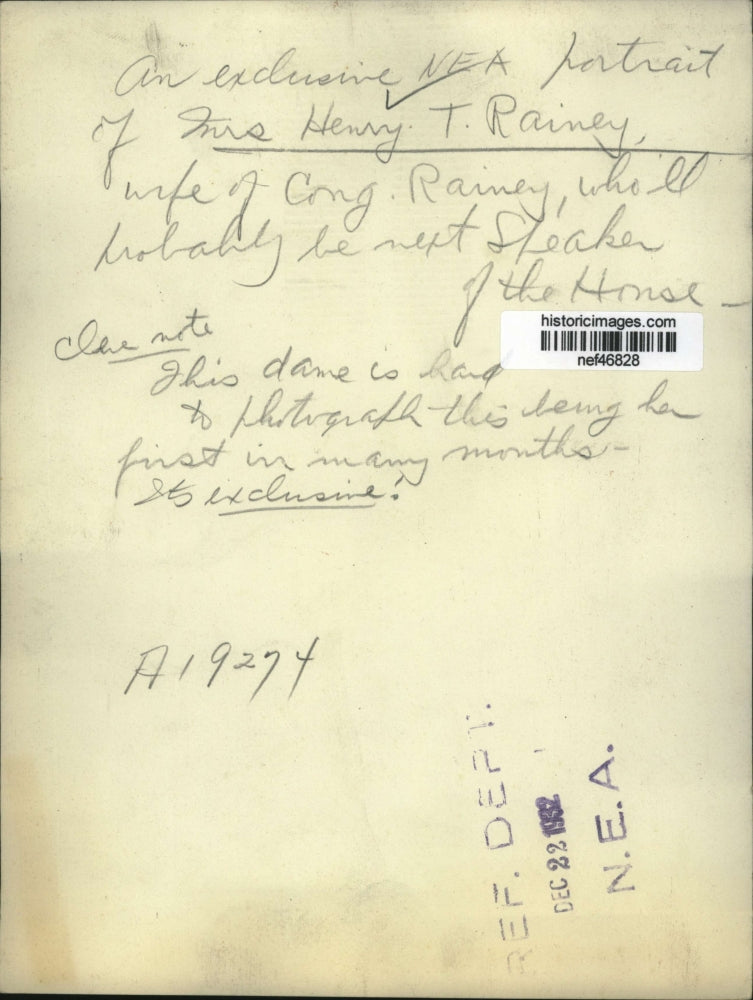 An exclusive NEA portrait
of Mrs Henry T. Rainey,
wife of Cong. Rainey, who'll
probably be next Speaker
of the House -
historicimages.com
nef46828
Cleve note
This dame is hard
to photograph this being her
first in many months -
Its exclusive!
A19274
REF. DEPT.
DEC 22 1932
N.E.A.